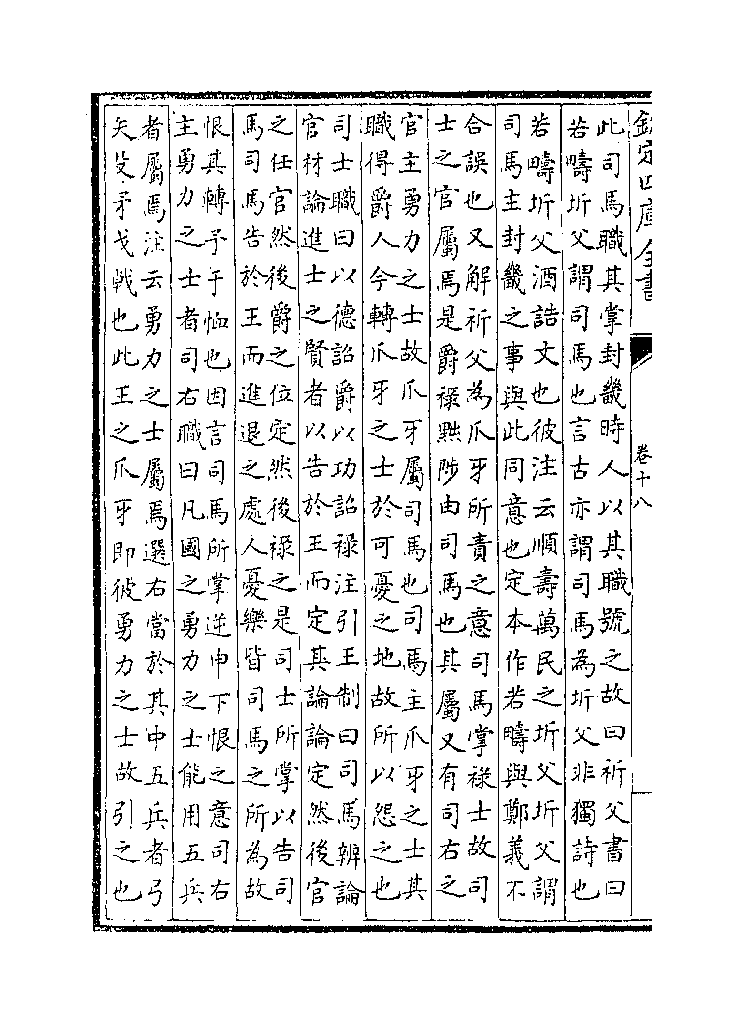 欽定四庫全書
卷十八
此司馬職其掌封畿時人以其職號之故曰祈父書曰
若疇圻父謂司馬也言古亦謂司馬為圻父非獨詩也
若疇圻父酒誥文也彼注云順壽萬民之圻父圻父謂
司馬主封畿之事與此同意也定本作若疇與鄭義不
合誤也又解祈父為爪牙所責之意司馬掌祿士故司
士之官屬焉是爵祿黜陟由司馬也其屬又有司右之
官主勇力之士故爪牙屬司馬也司馬主爪牙之士其
職得爵人今轉爪牙之士於可憂之地故所以怨之也
司士職曰以德詔爵以功詔祿注引王制曰司馬辨論
官材論進士之賢者以告於王而定其論論定然後官
之任官然後爵之位定然後祿之是司士所掌以告司
馬司馬告於王而進退之處人憂樂皆司馬之所為故
恨其轉予于恤也因言司馬所掌逆申下恨之意司右
主勇力之士者司右職曰凡國之勇力之士能用五兵
者屬焉注云勇力之士屬焉選右當於其中五兵者弓
矢殳矛戈戟也此王之爪牙即彼勇力之士故引之也